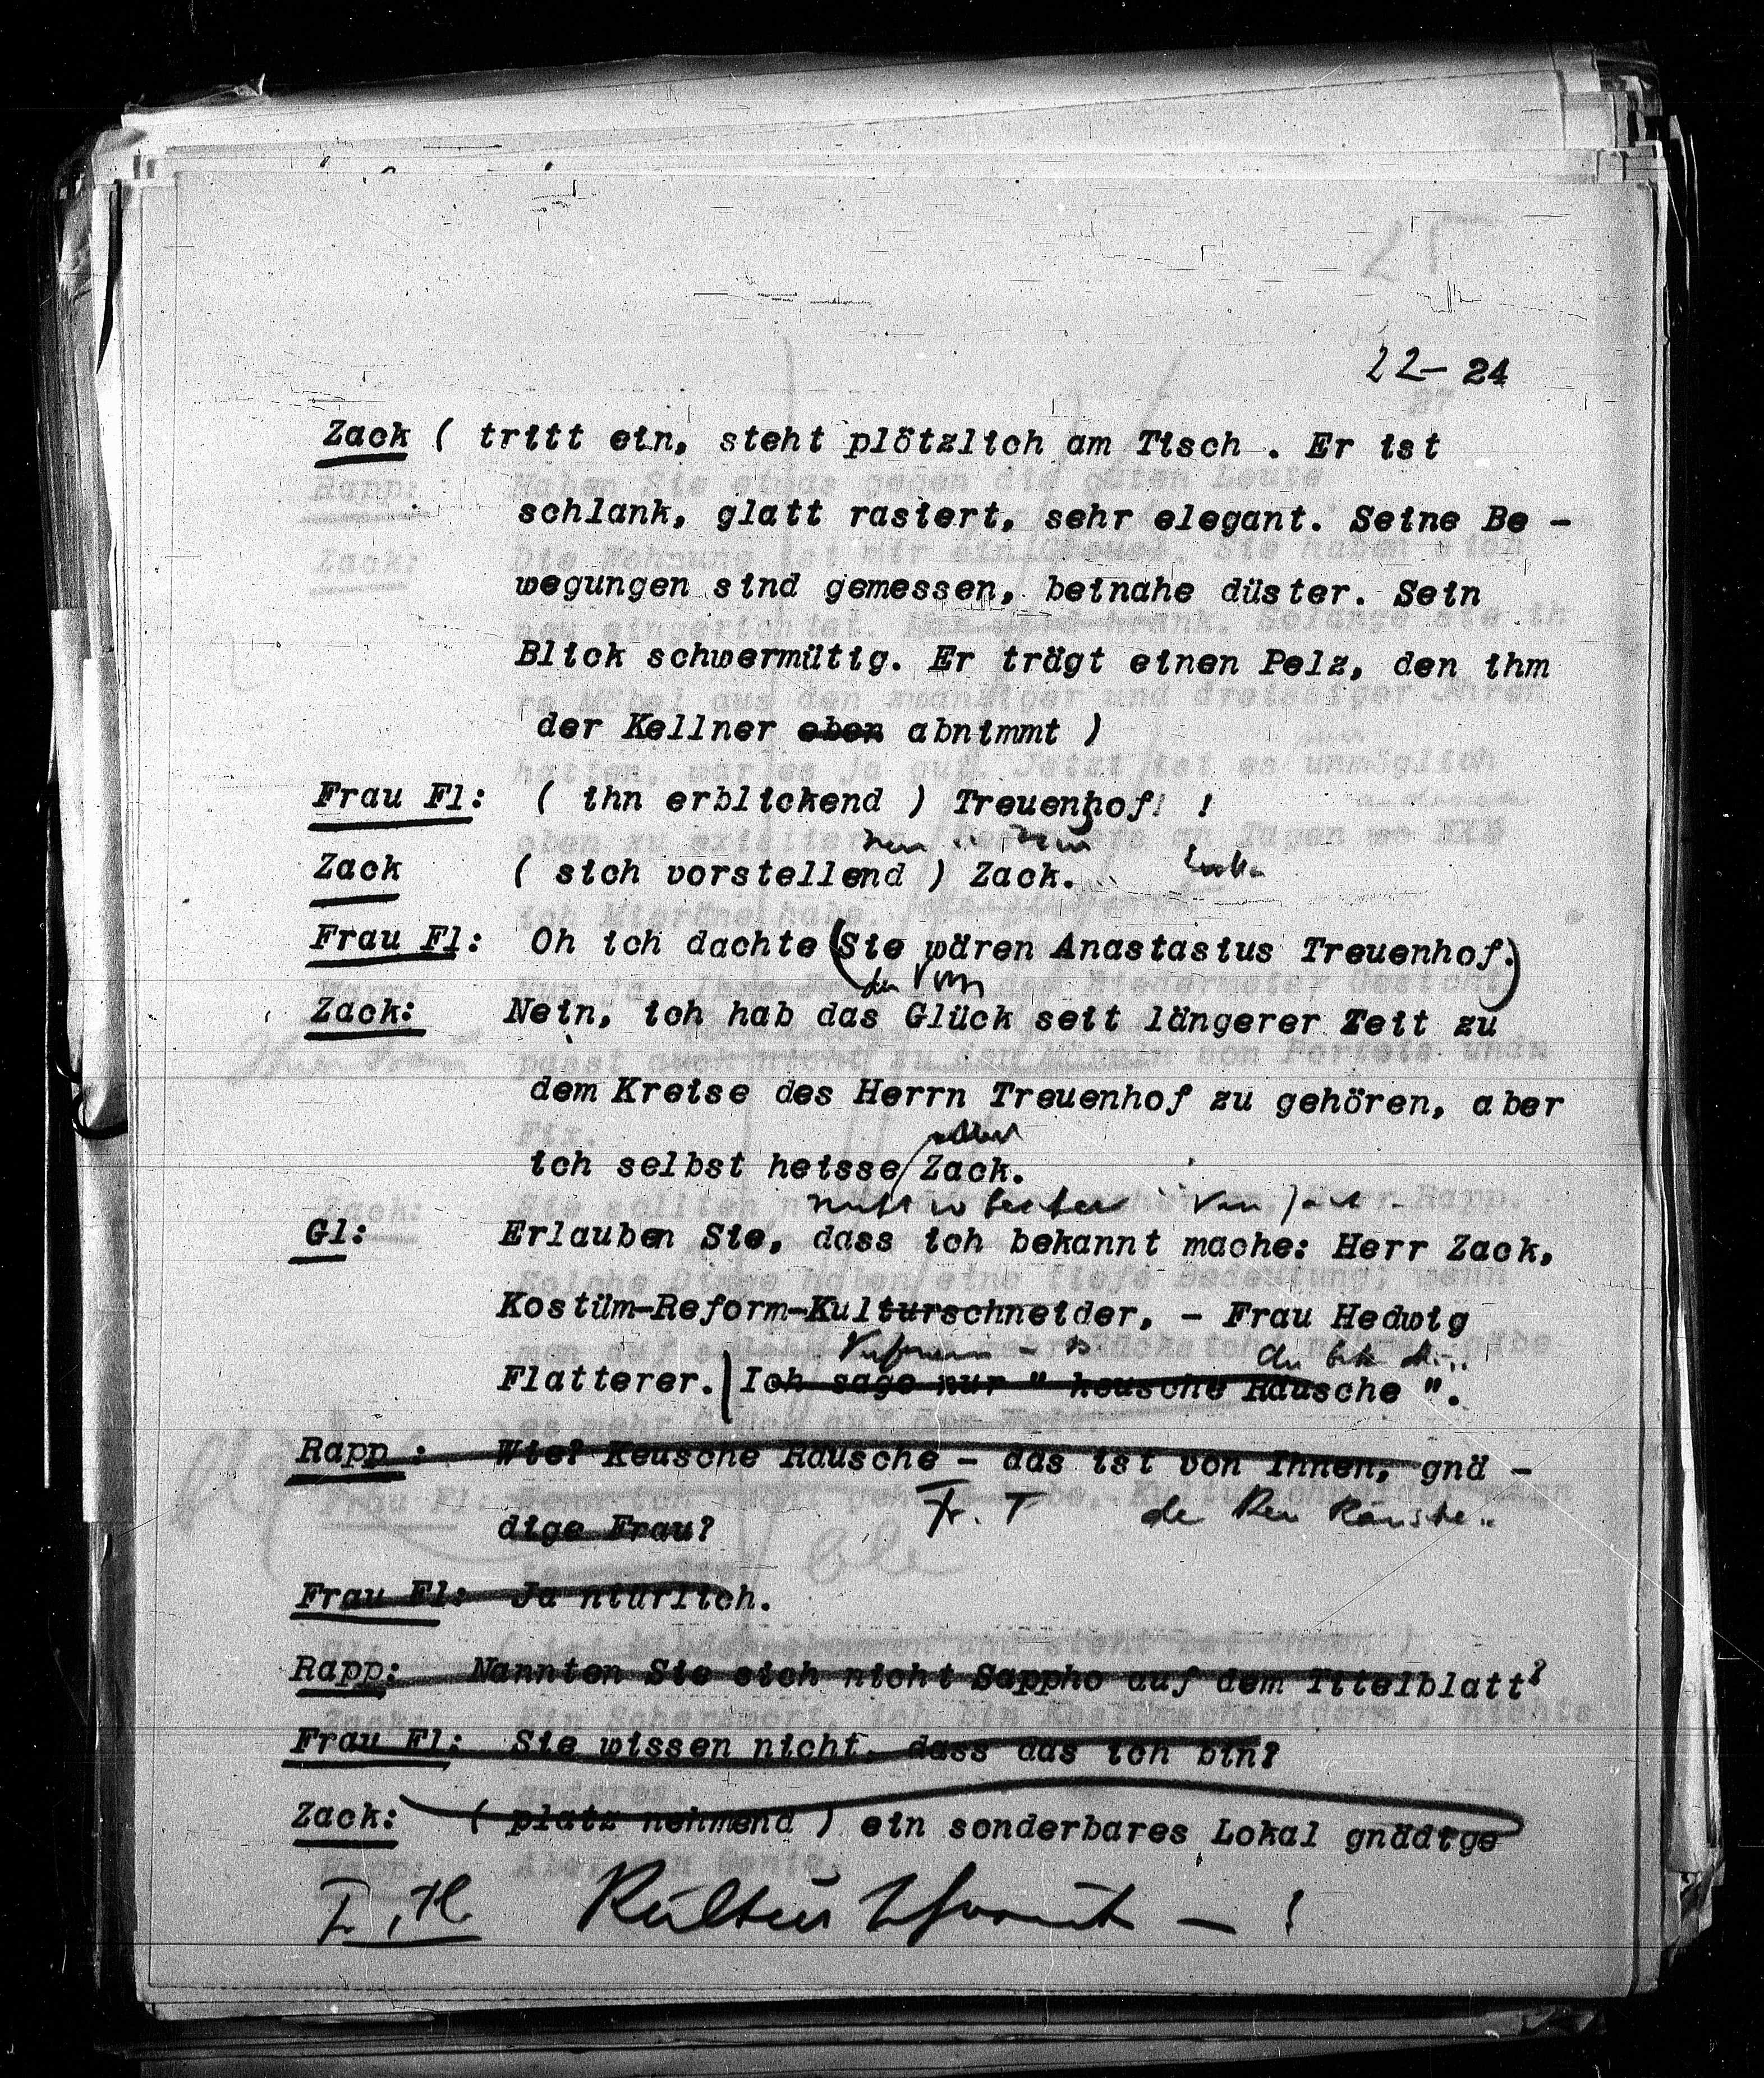 22- 24
Zack ( tritt ein, steht plötzlich am Tisch . Er ist
schlank, glatt rasiert, sehr elegant. Seine Be -
wegungen sind gemessen, beinahe düster. Sein
Blick schwermütig. Er trägt einen Pelz, den ihm
der Kellner eben abnimmt )
Frau Fl: ( ihn erblickend ) Treuenhof! !
Zack ( sich vorstellend ) Zack.
Frau Fl: Oh ich dachte (Sie wären Anastasius Treuenhof.)
Zack: Nein, ich hab das Glück seit längerer Zeit zu
dem Kreise des Herrn Treuenhof zu gehören, aber
ich selbst heisse Zack.
Gl: Erlauben Sie, dass ich bekannt mache: Herr Zack,
Kostüm-Reform-Kulturschneider, - Frau Hedwig
Flatterer. Ich sage nur " keusche Räusche ".
Rapp : Wie? Keusche Räusche - das ist von Ihnen, gnä -
dige Frau?
Fr. T
Frau Fl: Ja ntürlich.
Rapp: Nannten Sie sich nicht Sappho auf dem Titelblatt?
Frau Fl: Sie wissen nicht, dass das ich bin?
Zack: ( platz nehmend ) ein sonderbares Lokal gnädige
Kultur